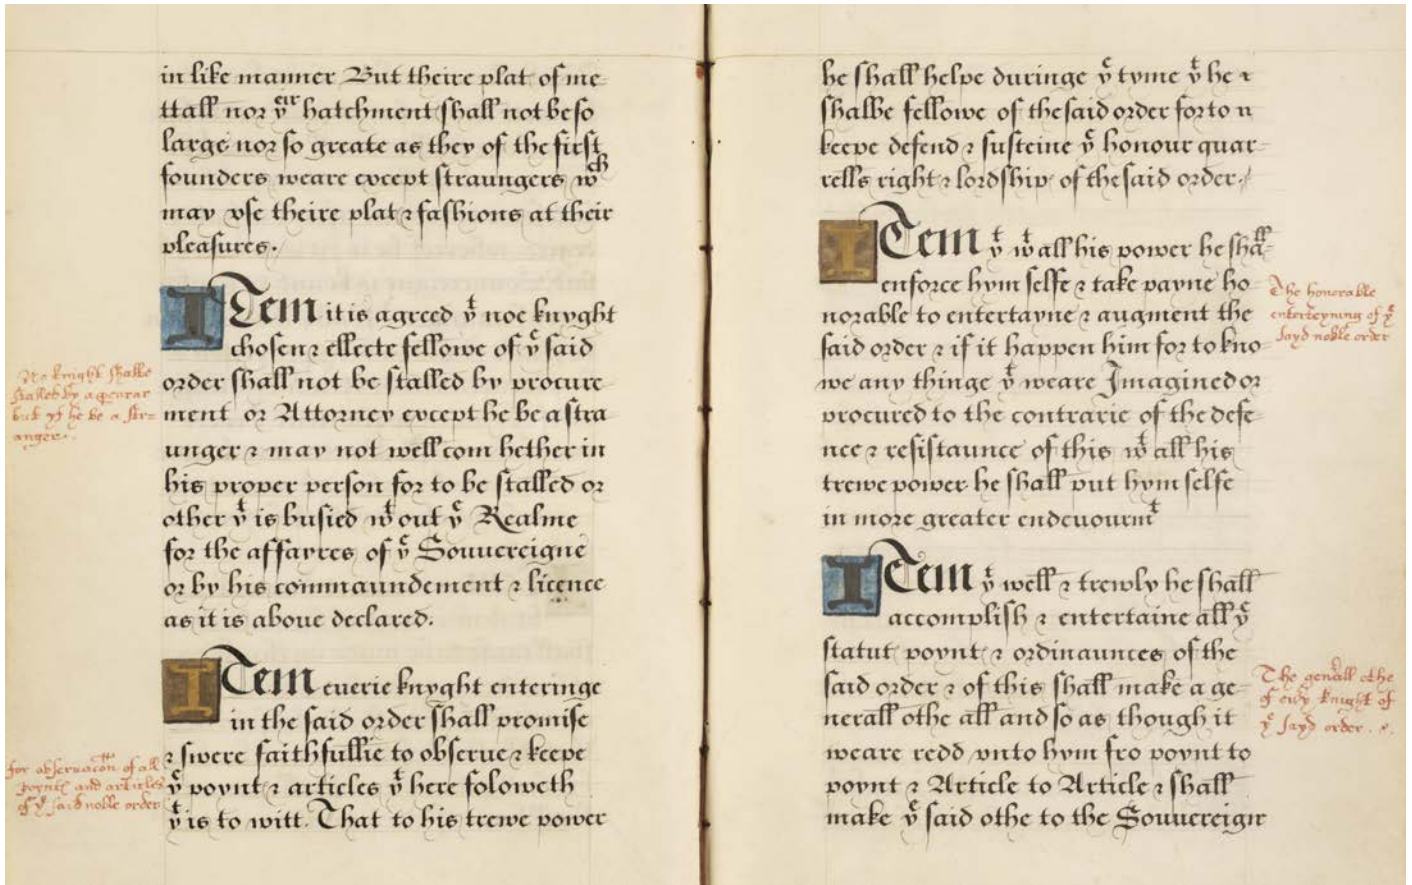 in like manner But theire plat of me-
ttall nor yeir hatchment shall not be so
large nor so greate as they of the first
founders weare except straungers wch
may vse theire plat & fashions at their
pleasures.
ITem it is agreed yt noe knyght
chosen & ellecte fellowe of ye said
order shall not be stalled by procure-
ment or Attorney except he be a stra
unger & may not well com hether in
his proper person for to be stalled or
other yt is busied wt out ye Realme
for the affayres of ye Souuereigne
or by his commaundement & licence
as it is aboue declared.
No knight shalbe
stalled by
but yf he be a str-
anger.
ITem euerie knyght enteringe
in the said order shall promise
& swere faithfullie to obserue & keepe
ye poynt & articles yt here foloweth
yt is to witt. That to his trewe power
for obseruacon of all
poyntes and articles
of ye said noble order
he shall helpe duringe ye tyme yt he &
shalbe fellowe of the said order for to n
keepe defend & susteine ye honour quar-
rells right & lordship of the said order.
ITem yt wt all his power he shall
enforce hym selfe & take payne ho-
norable to entertayne & augment the
said order & if it happen him for to kno-
we any thinge yt weare Imagined or
procured to the contrarie of the defe-
nce & resistaunce of this wt all his
trewe power he shall put hym selfe
in more greater endeuourmt
The honorable
enterteyning of ye
sayd noble order
ITem yt well & trewly he shall
accomplish & entertaine all ye
statut poynt & ordinaunces of the
said order & of this shall make a ge-
nerall othe all and so as though it
weare redd vnto hym fro poynt to
poynt & Article to Article & shall
make ye said othe to the Souuereign
The gen'all othe
of eu'y knight of
ye sayd order.